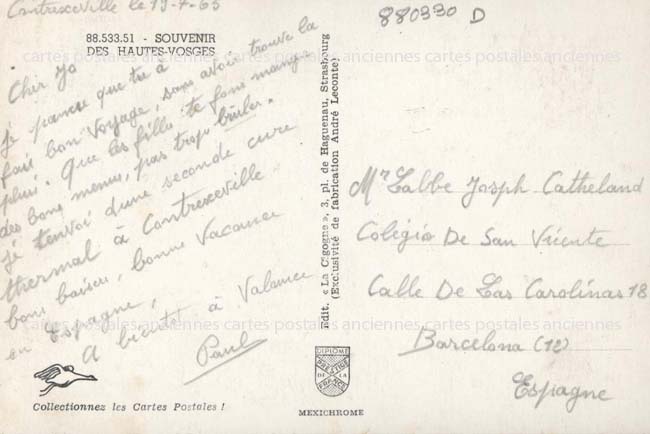 Contrexeville le 19-7-65
880330 D
88.533.51 - SOUVENIR
DES HAUTES-VOSGES
Cher Jo
Je pense que tu à
fais bon voyage, sans avoir trouvé la
pluie. Que les filles te font manger
des bons menus, pas trop brûler.
Je t'envoi d'une seconde cure
thermal à Contrexeville
bons baisers, bonne Vacance
en Espagne,
A bientôt à Valence
Paul
Edit. « La Cigogne », 3, pl. de Haguenau, Strasbourg
(Exclusivité de fabrication André Leconte)
Mr Labbe Joseph Catheland
Colégio De San Vicente
Calle De Las Carolinas 18
Barcelona (12)
Espagne
Collectionnez les Cartes Postales !
DIPLOME
PRESTIGE
DE LA
FRANCE
MEXICHROME
cartes postales anciennes cartes postales anciennes cartes postales anciennes